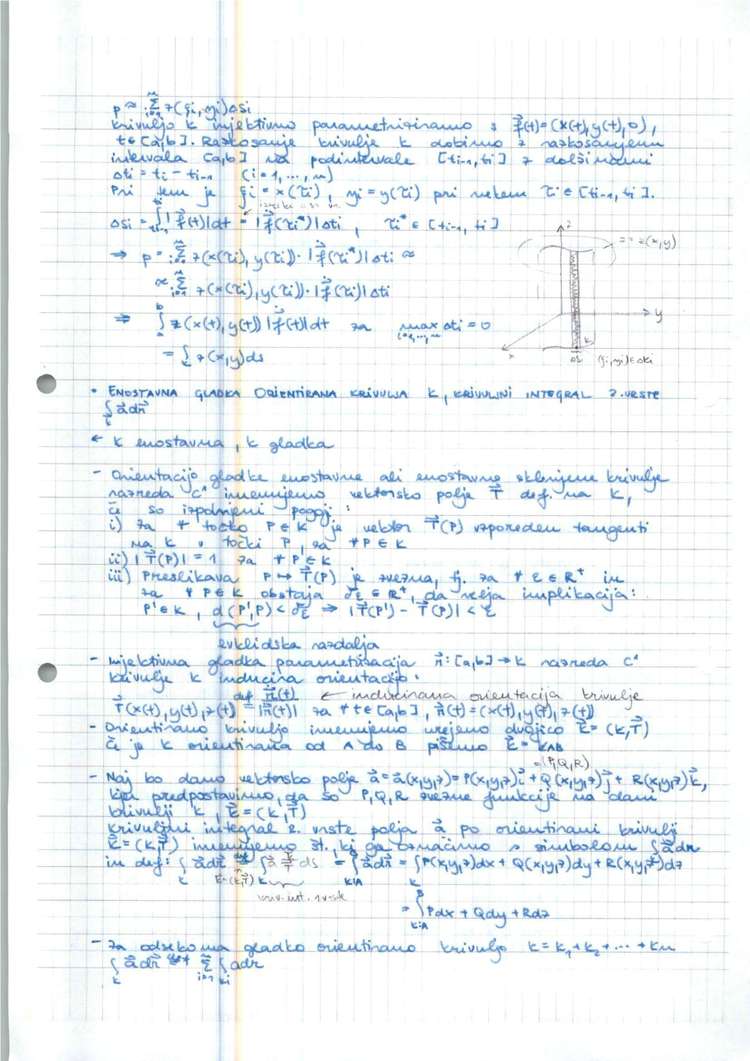 p ≈ Σ_{i=1}^{n} z(ξi, ηi) Δsi
krivuljo k injektivno parametriziramo z r⃗(t) = (x(t), y(t), 0),
t ∈ [a,b]. Razkosanje krivulje k dobimo z razkosanjem
intervala [a,b] na podintervale [ti-1, ti] z dolžinami
Δti = ti - ti-1 (i = 1, ..., n)
Pri tem je ξi = x(τi), ηi = y(τi) pri nekem τi ∈ [ti-1, ti].
Δsi = ∫_{ti-1}^{ti} |ṙ(t)| dt = |ṙ(τi*)| Δti, τi* ∈ [ti-1, ti]
⇒ p ≈ Σ_{i=1}^{n} z(x(τi), y(τi)) · |ṙ(τi*)| Δti ≈
≈ Σ_{i=1}^{n} z(x(τi), y(τi)) · |ṙ(τi)| Δti
⇒ ∫_{a}^{b} z(x(t), y(t)) |ṙ(t)| dt za max_{i=1,...,n} Δti = 0
= ∫_k z(x,y) ds
z
z = z(x,y)
y
x
k
(ξi, ηi) ∈ Δki
• ENOSTAVNA GLADKA ORIENTIRANA KRIVULJA K, KRIVULJNI INTEGRAL 2. VRSTE
∫_k a⃗ dr⃗
← k enostavna, k gladka
- Orientacijo gladke enostavne ali enostavne sklenjene krivulje
razreda C¹ imenujemo vektorsko polje T⃗ def. na k,
če so izpolnjeni pogoji:
i) za ∀ točko P ∈ k je vektor T⃗(P) vzporeden tangenti
na k v točki P, za ∀P ∈ k
ii) |T⃗(P)| = 1 za ∀P ∈ k
iii) Preslikava P ↦ T⃗(P) je zvezna, tj. za ∀ ε ∈ R⁺ in
za ∀P ∈ k obstaja δε ∈ R⁺, da velja implikacija:
P' ∈ k, d(P',P) < δε ⇒ |T⃗(P') - T⃗(P)| < ε
evklidska razdalja
- Injektivna gladka parametrizacija r⃗: [a,b] → k razreda C¹
krivulje k inducira orientacijo:
← inducirana orientacija krivulje
T⃗(x(t), y(t), z(t)) =def ṙ(t)/|ṙ(t)| za ∀t ∈ [a,b], r⃗(t) = (x(t), y(t), z(t))
- Orientirano krivuljo imenujemo urejeno dvojico k⃗ = (k, T⃗)
Če je k orientirana od A do B pišemo k⃗ = kAB
= (P,Q,R)
- Naj bo dano vektorsko polje a⃗ = a⃗(x,y,z) = P(x,y,z)i⃗ + Q(x,y,z)j⃗ + R(x,y,z)k⃗,
kjer predpostavimo, da so P, Q, R zvezne funkcije na dani
krivulji k, k⃗ = (k, T⃗)
Krivuljni integral 2. vrste polja a⃗ po orientirani krivulji
k⃗ = (k, T⃗) imenujemo št., ki ga označimo s simbolom ∫ a⃗ dr⃗
in def: ∫ a⃗ dr⃗ =def ∫_k a⃗ T⃗ ds = ∫ a⃗ dr⃗ = ∫ P(x,y,z)dx + Q(x,y,z)dy + R(x,y,z)dz
k⃗ = (k,T⃗)
kriv. int. 1. vrste
= ∫_{k:A}^{B} Pdx + Qdy + Rdz
- Za odsekoma gladko orientirano krivuljo k = k₁ + k₂ + ... + kn
∫_k a⃗ dr⃗ =def Σ_{i=1}^{n} ∫_{ki} a dr